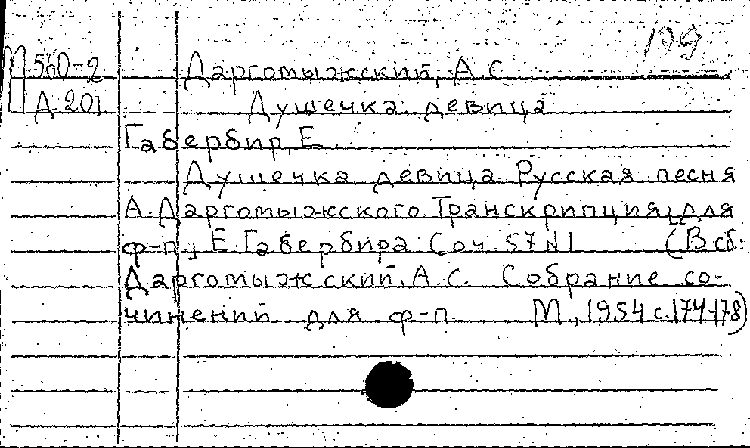 139
М 560-2 Даргомыжский, А.С.
Д 201 Душечка девица
Габербир, Е.
Душечка девица. Русская песня
А. Даргомыжского. Транскрипция для
ф-п. Е. Габербира. Соч. 57 N 1 (В сб:
Даргомыжский, А.С. Собрание со-
чинений для ф-п. М., 1954 с. 174-178)